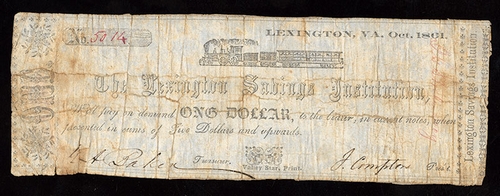 No. 5014
LEXINGTON, VA. Oct. 1861.
The Lexington Savings Institution,
Will pay on demand ONE DOLLAR, to the bearer, in current notes, when
presented in sums of Five Dollars and upwards.
Treasurer,
Valley Star, Print.
J. Compton Pres't.
ONE
Lexington Savings Institution